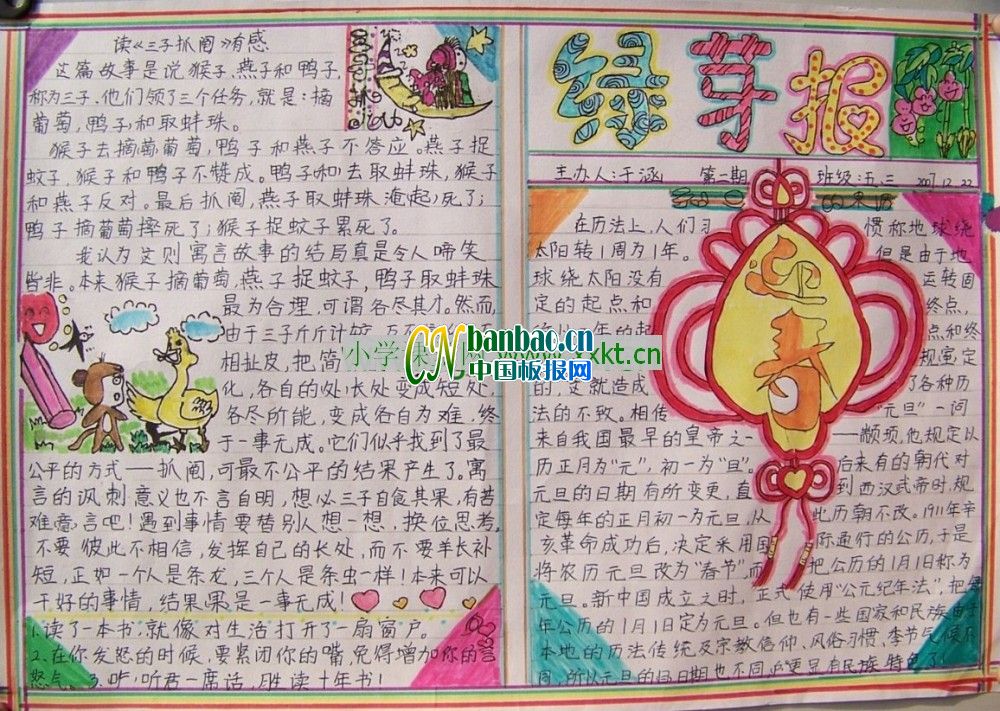 读《三子抓阄》有感
这篇故事是说猴子、燕子和鸭子,
称为三子、他们领了三个任务,就是:摘
葡萄,鸭子和取蚌珠。
猴子去摘萄葡萄,鸭子和燕子不答应。燕子捉
蚊子,猴子和鸭子不赞成。鸭子和去取蚌珠、猴子
和燕子反对。最后抓阄,燕子取蚌珠淹起;死了;
鸭子摘葡萄摔死了;猴子捉蚊子累死了。
我认为这则寓言故事的结局真是令人啼笑
皆非。本来猴子摘葡萄,燕子捉蚊子,鸭子取蚌珠
最为合理,可谓各尽其才。然而,
由于三子斤斤计较
相扯皮,把简
化,各自的处长处变成短处,
各尽所能,变成各自为难,终
于一事无成。它们似乎找到了最
公平的方式——抓阄,可最不公平的结果产生了。寓
言的讽刺意义也不言自明,想必三子自食其果,有苦
难言吧!遇到事情要替别人想一想,换位思考,
不要彼此不相信,发挥自己的长处,而不要羊长补
短,正如一个人是条龙,三个人是条虫一样!本来可以
干好的事情,结果果是一事无成!
1.读了一本书,就像对生活打开了一扇窗户。
2.在你发怒的时候,要紧闭你的嘴,免得增加你的
怒气。3.听君一席话,胜读十年书!
绿芽报
主办人:于涵 第一期 班级:五.三 2007.12.22
迎春
在历法上,人们习惯称地球绕
太阳转1周为1年。但是由于地
球绕太阳没有运转固
定的起点和终点,
年的起点和终
规案,定
的,这就造成了各种历
法的不致。相传"元旦"一词
来自我国最早的皇帝之一——颛顼,他规定以
历正月为"元",初一为"旦"。后来有的朝代对
元旦的日期有所变更,直到西汉武帝时,规
定每年的正月初一为元旦,从此历朝不改。1911年辛
亥革命成功后,决定采用国际通行的公历,于是
将农历元旦改为"春节",而把公历的1月1日称为
元旦。新中国成立之时,正式使用"公元纪年法",把每
年公历的1月1日定为元旦。但也有一些国家和民族由于
本地的历法传统及宗教信仰、风俗习惯、季节气候不
同,所以元旦的日期也不同,更显有民族特色了
小学课
www.xxkt.cn
CN banbao.cn
中国板报网